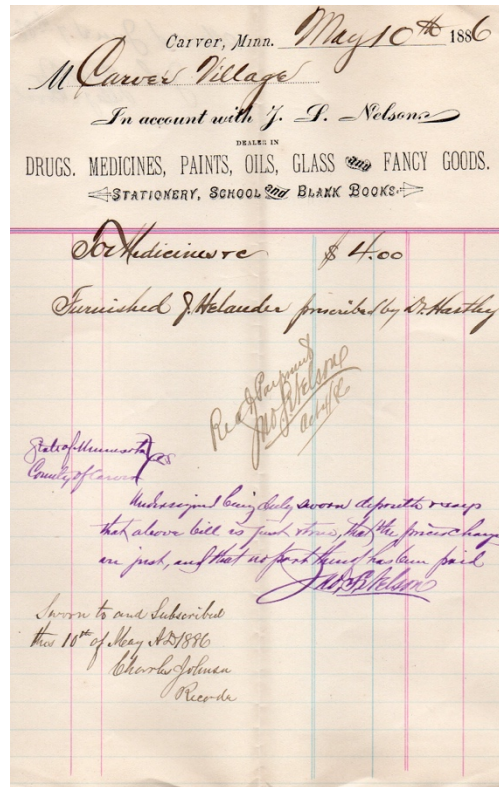 Carver, Minn. May 10th 1886
M Carver Village
In account with J. S. Nelson
DEALER IN
DRUGS. MEDICINES, PAINTS, OILS, GLASS and FANCY GOODS.
STATIONERY, SCHOOL and BLANK BOOKS.
To Medicines &c $4.00
Furnished J. Helander prescribed by Dr. Hartley
Recd Payment
Jno S Nelson
State of Minnesota } ss
County of Carver
Undersigned being duly sworn deposeth & says
that above bill is just & true, that the prices charg
are just, and that no part thereof has been paid
Jno S Nelson
Sworn to and Subscribed
this 10th of May AD 1886
Charles Johnson
Recorder